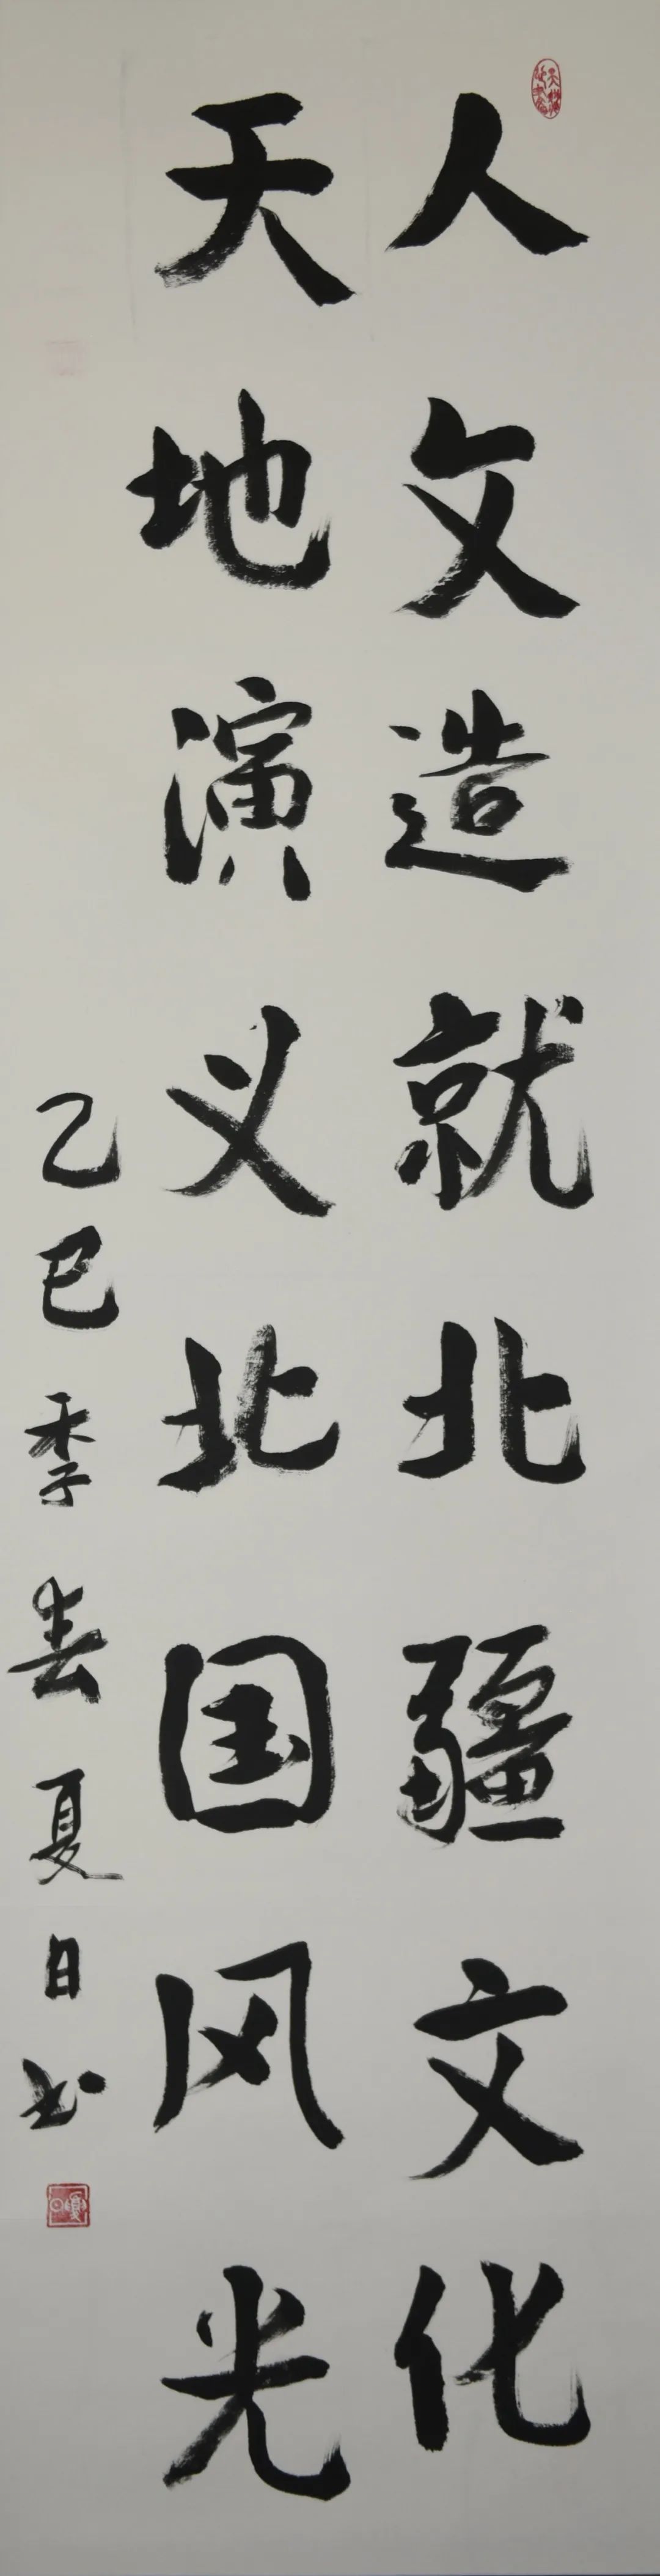 人文造就北疆文化
天地演义北国风光
乙巳季春夏日书